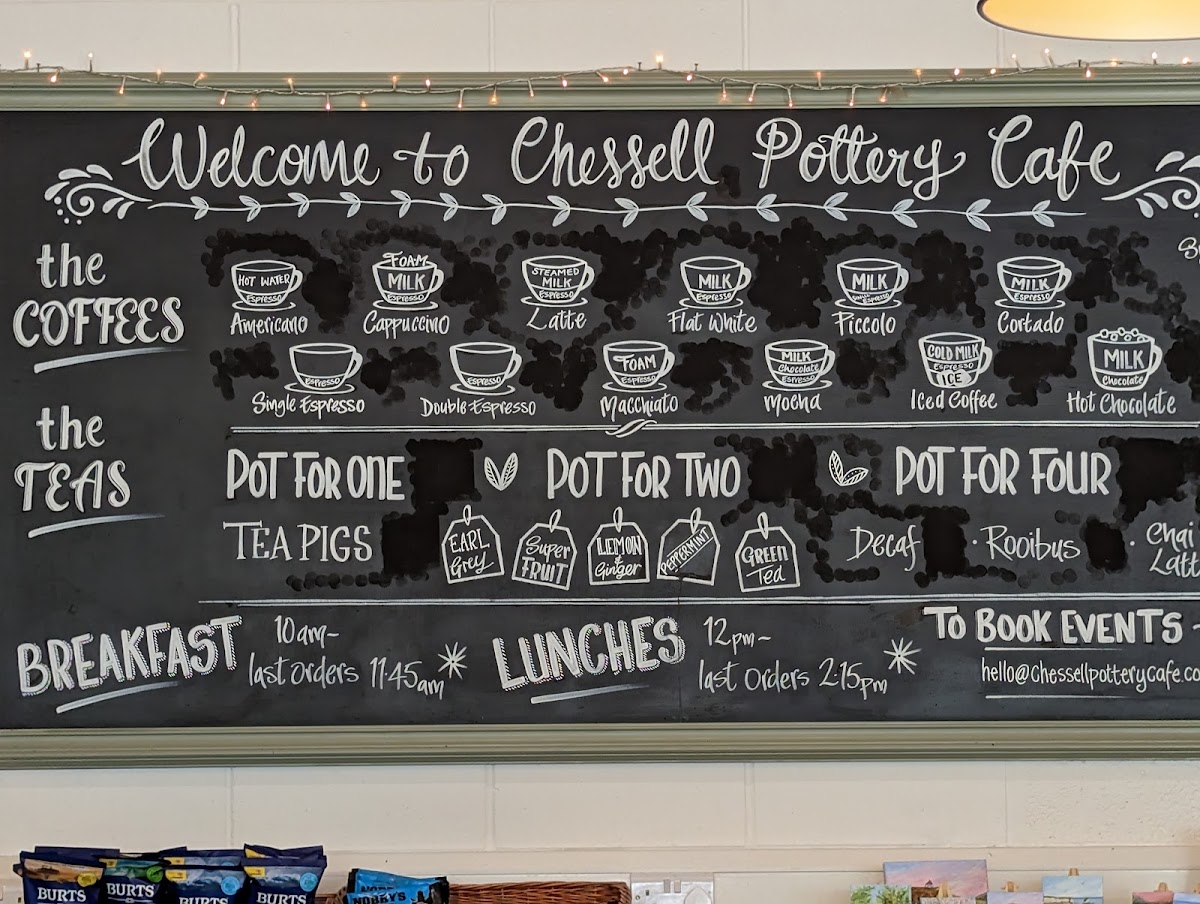 Welcome to Chessell Pottery Cafe
the
COFFEES
HOT WATER
Espresso
Americano
FOAM
MILK
Espresso
Cappuccino
STEAMED
MILK
Espresso
Latte
MILK
Espresso
Flat White
MILK
Espresso
Piccolo
MILK
Espresso
Cortado
Espresso
Single Espresso
Espresso
Double Espresso
FOAM
Espresso
Macchiato
MILK
Chocolate
Espresso
Mocha
COLD MILK
Espresso
ICE
Iced Coffee
MILK
Chocolate
Hot Chocolate
the
TEAS
POT FOR ONE
POT FOR TWO
POT FOR FOUR
TEA PIGS
EARL
Grey
Super
FRUIT
LEMON
&
Ginger
PEPPERMINT
GREEN
Tea
Decaf
· Rooibus
· Chai
Latt
BREAKFAST
10am-
last orders 11.45am
LUNCHES
12pm-
last orders 2.15pm
TO BOOK EVENTS -
hello@chessellpotterycafe.co
BURTS
BURTS
BURTS
BURTS
NOBBY'S